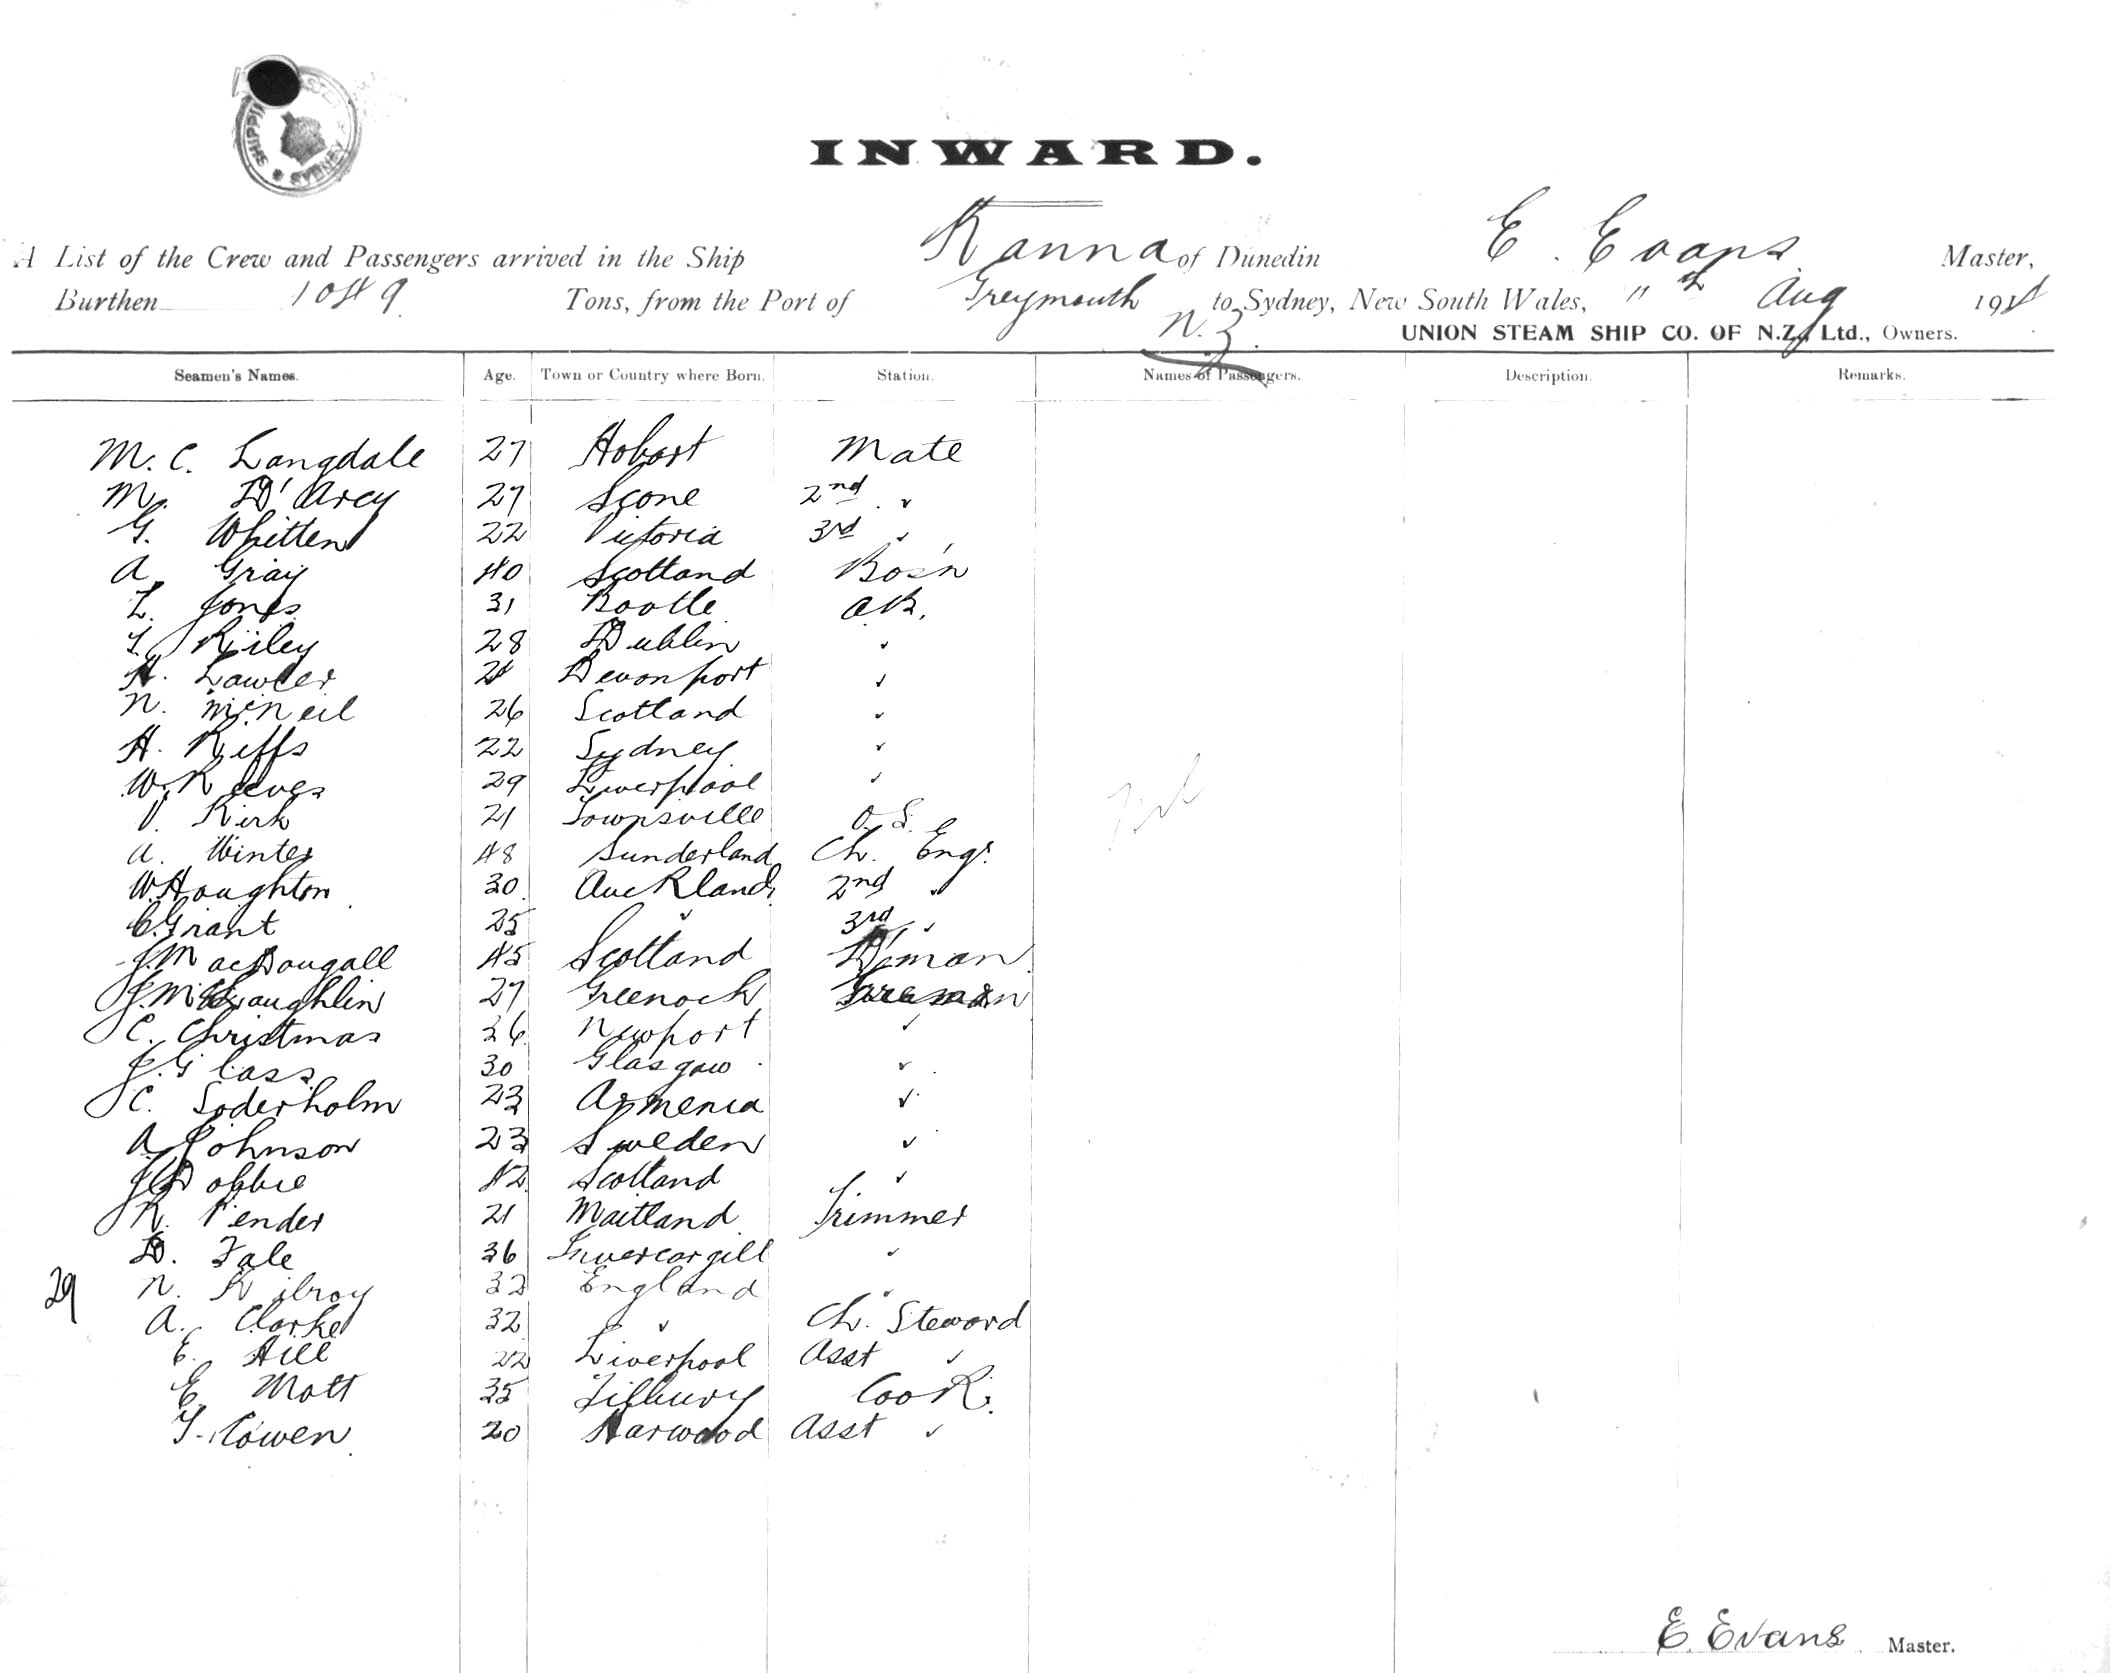 SHIPPING SYDNEY
INWARD.
A List of the Crew and Passengers arrived in the Ship Kanna of Dunedin E. Evans Master,
Burthen 1049 Tons, from the Port of Greymouth N.Z. to Sydney, New South Wales, 11th Aug 191
UNION STEAM SHIP CO. OF N.Z., Ltd., Owners.
Seamen's Names. Age. Town or Country where Born. Station. Names of Passengers. Description. Remarks.
M. C. Langdale 27 Hobart Mate
M. D'Arcy 27 Scone 2nd "
G. Whitten 22 Victoria 3rd "
A. Gray 40 Scotland Bos'n
L. Jones 31 Bootle A.B.
T. Riley 28 Dublin "
H. Lawler Devonport "
N. McNeil 26 Scotland "
H. Kiffs 22 Sydney "
W. Reeves 29 Liverpool "
V. Kirk 21 Townsville O.S.
A. Winter 48 Sunderland Ch. Engr.
W. Houghton 30 Auckland 2nd "
C. Grant 25 " 3rd "
J. MacDougall 45 Scotland D'man
J. McLaughlin 27 Greenock Fireman
C. Christmas 26 Newport "
J. Glass 30 Glasgow "
C. Soderholm 23 Armenia "
A. Johnson 23 Sweden "
J. Dobbie 42 Scotland "
R. Pender 21 Maitland Trimmer
D. Tale 36 Invercargill "
29 N. Kilroy 32 England "
A. Clarke 32 " Ch. Steward
E. Hill 22 Liverpool Asst "
E. Mott 35 Tilbury Cook.
T. Cowen 20 Harwood Asst "
E Evans Master.